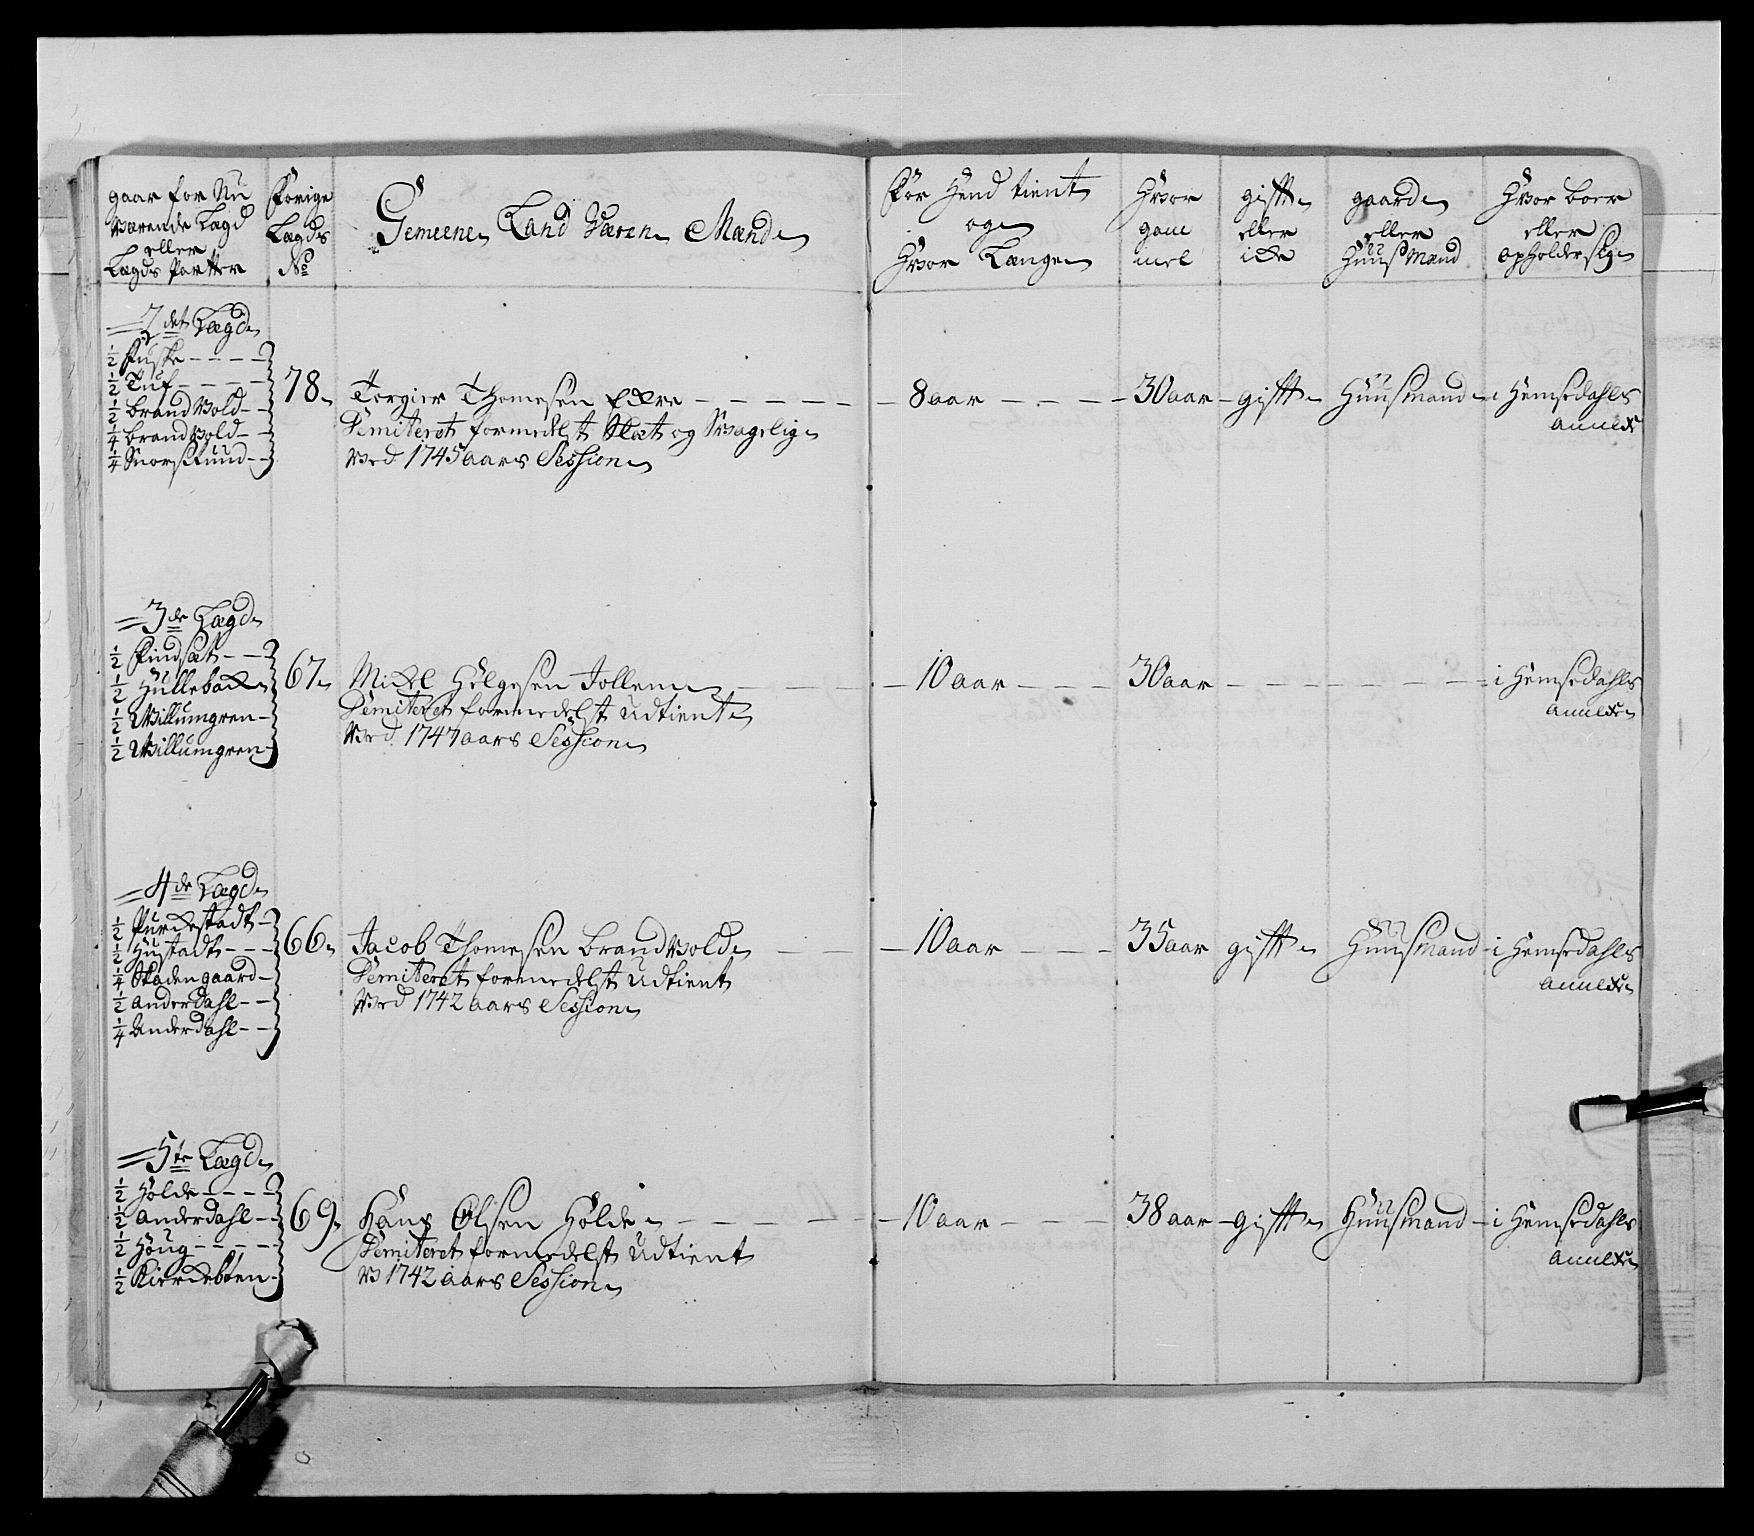 gaar for Nu
Værende Lægd
eller
Lægds Partter
Forige
Lægds
No
Gemeene Land Væren Mænd
Før Hend tient
og
Hvor Længe
Hvor
gam
mel
gifft
eller
icke
gaard
eller
Huus Mænd
Hvor boer
eller
opholder sig
2det Lægd
1/2 Fuske
1/2 Tuf
1/2 Brandvold
1/4 Brandvold
1/4
78
Torgier Thomesen Ekre
Demiteret formedelst Slæt og Svagelig
Ved 1745 aars Session
8 aar
30 aar
gifft
Huusmand
i Hemsedahls
annex
3de Lægd
1/2 Findsæt
1/2 Hulleback
1/2 Villumgren
1/2 Villumgren
67
Mickel Helgesen Tollem
Demiteret formedelst Udtient
Ved 1747 aars Session
10 aar
30 aar
i Hemsedahls
annex
4de Lægd
1/2
1/2 Hustadt
1/4 Skadengaard
1/2 Anderdahl
1/4 Anderdahl
66
Jacob Thomesen Brandvold
Demiteret formedelst Udtient
Ved 1742 aars Session
10 aar
35 aar
gifft
Huusmand
i Hemsedahls
annex
5te Lægd
1/2 Holde
1/2 Anderdahl
1/2 Houg
1/2 Kierdeböen
69
Hans Olsen Holde
Demiteret formedelst Udtient
V 1742 aars Session
10 aar
38 aar
gifft
Huusmand
i Hemsedahls
annex